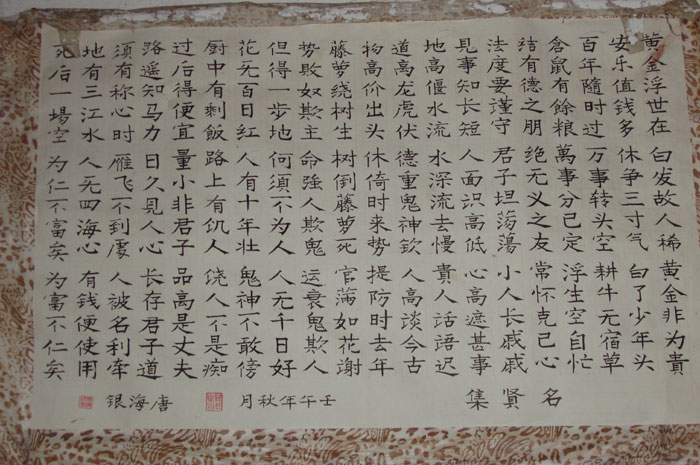 黄金浮世在白发故人稀黄金非为貴
安乐值钱多休争三寸气白了少年头
百年隨时过万事转头空耕牛无宿草
倉鼠有餘粮萬事分已定浮生空自忙
结有德之朋绝无义之友常怀克己心
法度要谨守君子坦荡蕩小人长戚戚
見事知长短人面识高低心高遮甚事
地高偃水流水深流去慢貴人话語迟
道高龙虎伏德重鬼神欽人高談今古
物高价出头休倚时来势提防时去年
藤萝绕树生树倒藤萝死官滿如花謝
势敗奴欺主命強人欺鬼运衰鬼欺人
但得一步地何須不为人人无千日好
花无百日红人有十年壮鬼神不敢傍
厨中有剩飯路上有饥人饶人不是痴
过后得便宜量小非君子品高是丈夫
路遥知马力日久見人心长存君子道
須有称心时雁飞不到處人被名利牵
地有三江水人无四海心有钱便使用
死后一場空为仁不富矣为富不仁矣
名賢集
壬午年秋月
唐海银